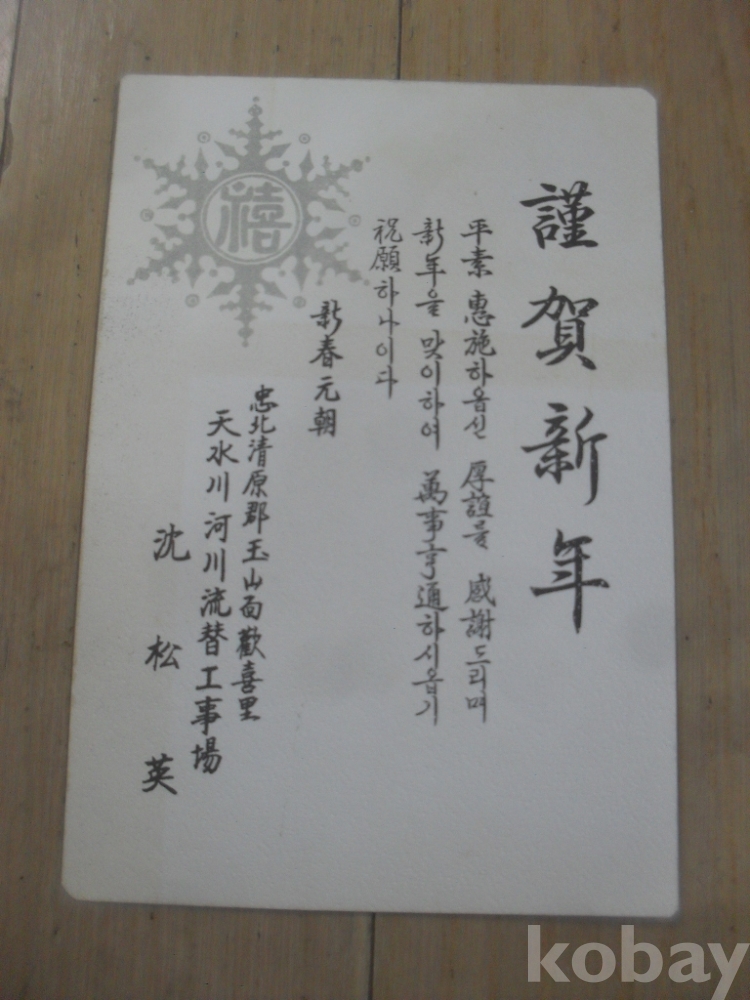 謹賀新年
平素 惠施하옵신 厚誼를 感謝드리며
新年을 맞이하여 萬事亨通하시옵기
祝願하나이다
新春元朝
忠北清原郡玉山面歡喜里
天水川河川流替工事場
沈松英
禧
kobay